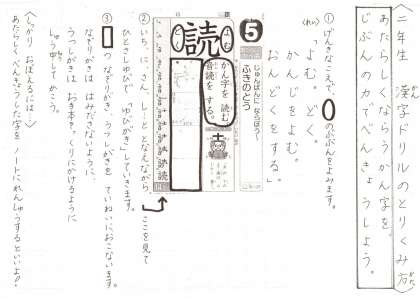 二年生 漢字ドリルのとりくみ方
あたらしくならうかん字を、
じぶんの力でべんきょうしよう。
①げんきなこえで、0の ぶぶんをよみます。
(れい)
「よむ。どく。
かんじをよむ。
おんどくをする。」
5
じゅんばんに ならぼう
ふきのとう
読
よむ
どく
かん字を読む
音読をする。
②いち、に、さん、しーと となえながら、
ひとさしゆびで「ゆびがき」していきます。
ここを見て
③ つ なぞりがき、うつしがきを ていねいにおこないます。
なぞりがきは はみださないように、
うつしがきは お手本を、くりにかけるように
しゅう中してかこう。
〈しっかり おぼえるには…〉
あたらしく べんきょうした字を ノートにれんしゅうするといいよ!